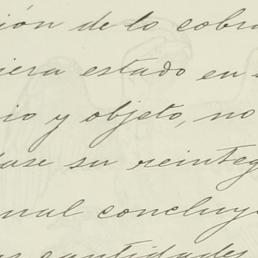 ión de lo cobra
iera estado en
io y objeto, no
tase su reinteg
nal concluyo
as cantidades